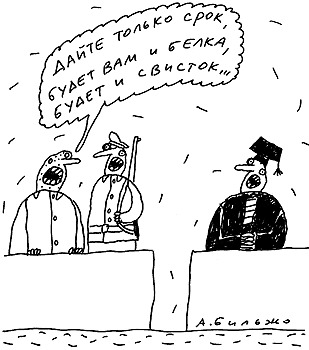 ДАЙТЕ ТОЛЬКО СРОК,
БУДЕТ ВАМ И БЕЛКА,
БУДЕТ И СВИСТОК...
А. Бильжо